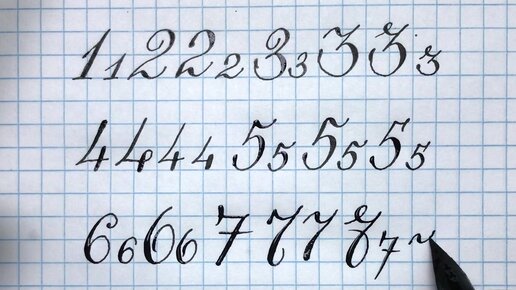 1122233333
4444 55 55 55
6666 7 7 7 7 7